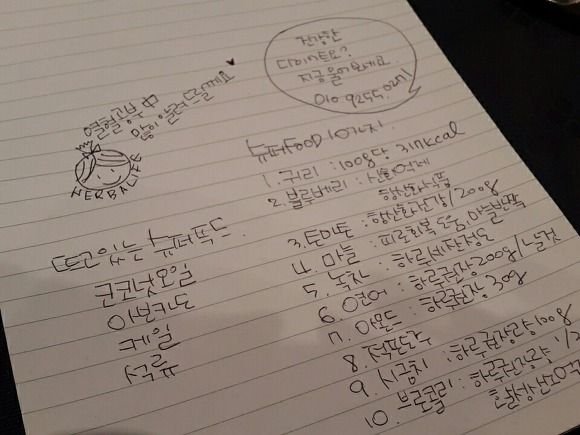 건강한
다이어트요?
지금 물어보세요
010 9255 0251
열혈공부中
많이 알려드릴께요 ♥
HERBALIFE
슈퍼FOOD 10가지.
1. 귀리 : 100g당 317kcal
2. 블루베리 : 산화억제
항산화식품
3. 토마토 : 항산화건강/200g
4. 마늘 : 피로회복 도움, 마늘반쪽
5. 녹차 : 하루 세잔정도
6. 연어 : 하루권장 200g/날것
7. 아몬드 : 하루권장 30g
8. 적포도주
9. 시금치 : 하루권장량 100g
10. 브로콜리 : 하루권장량 1/2
활성산소억
뜨고있는 슈퍼푸드.
코코넛오일
아보카도
케일
석류